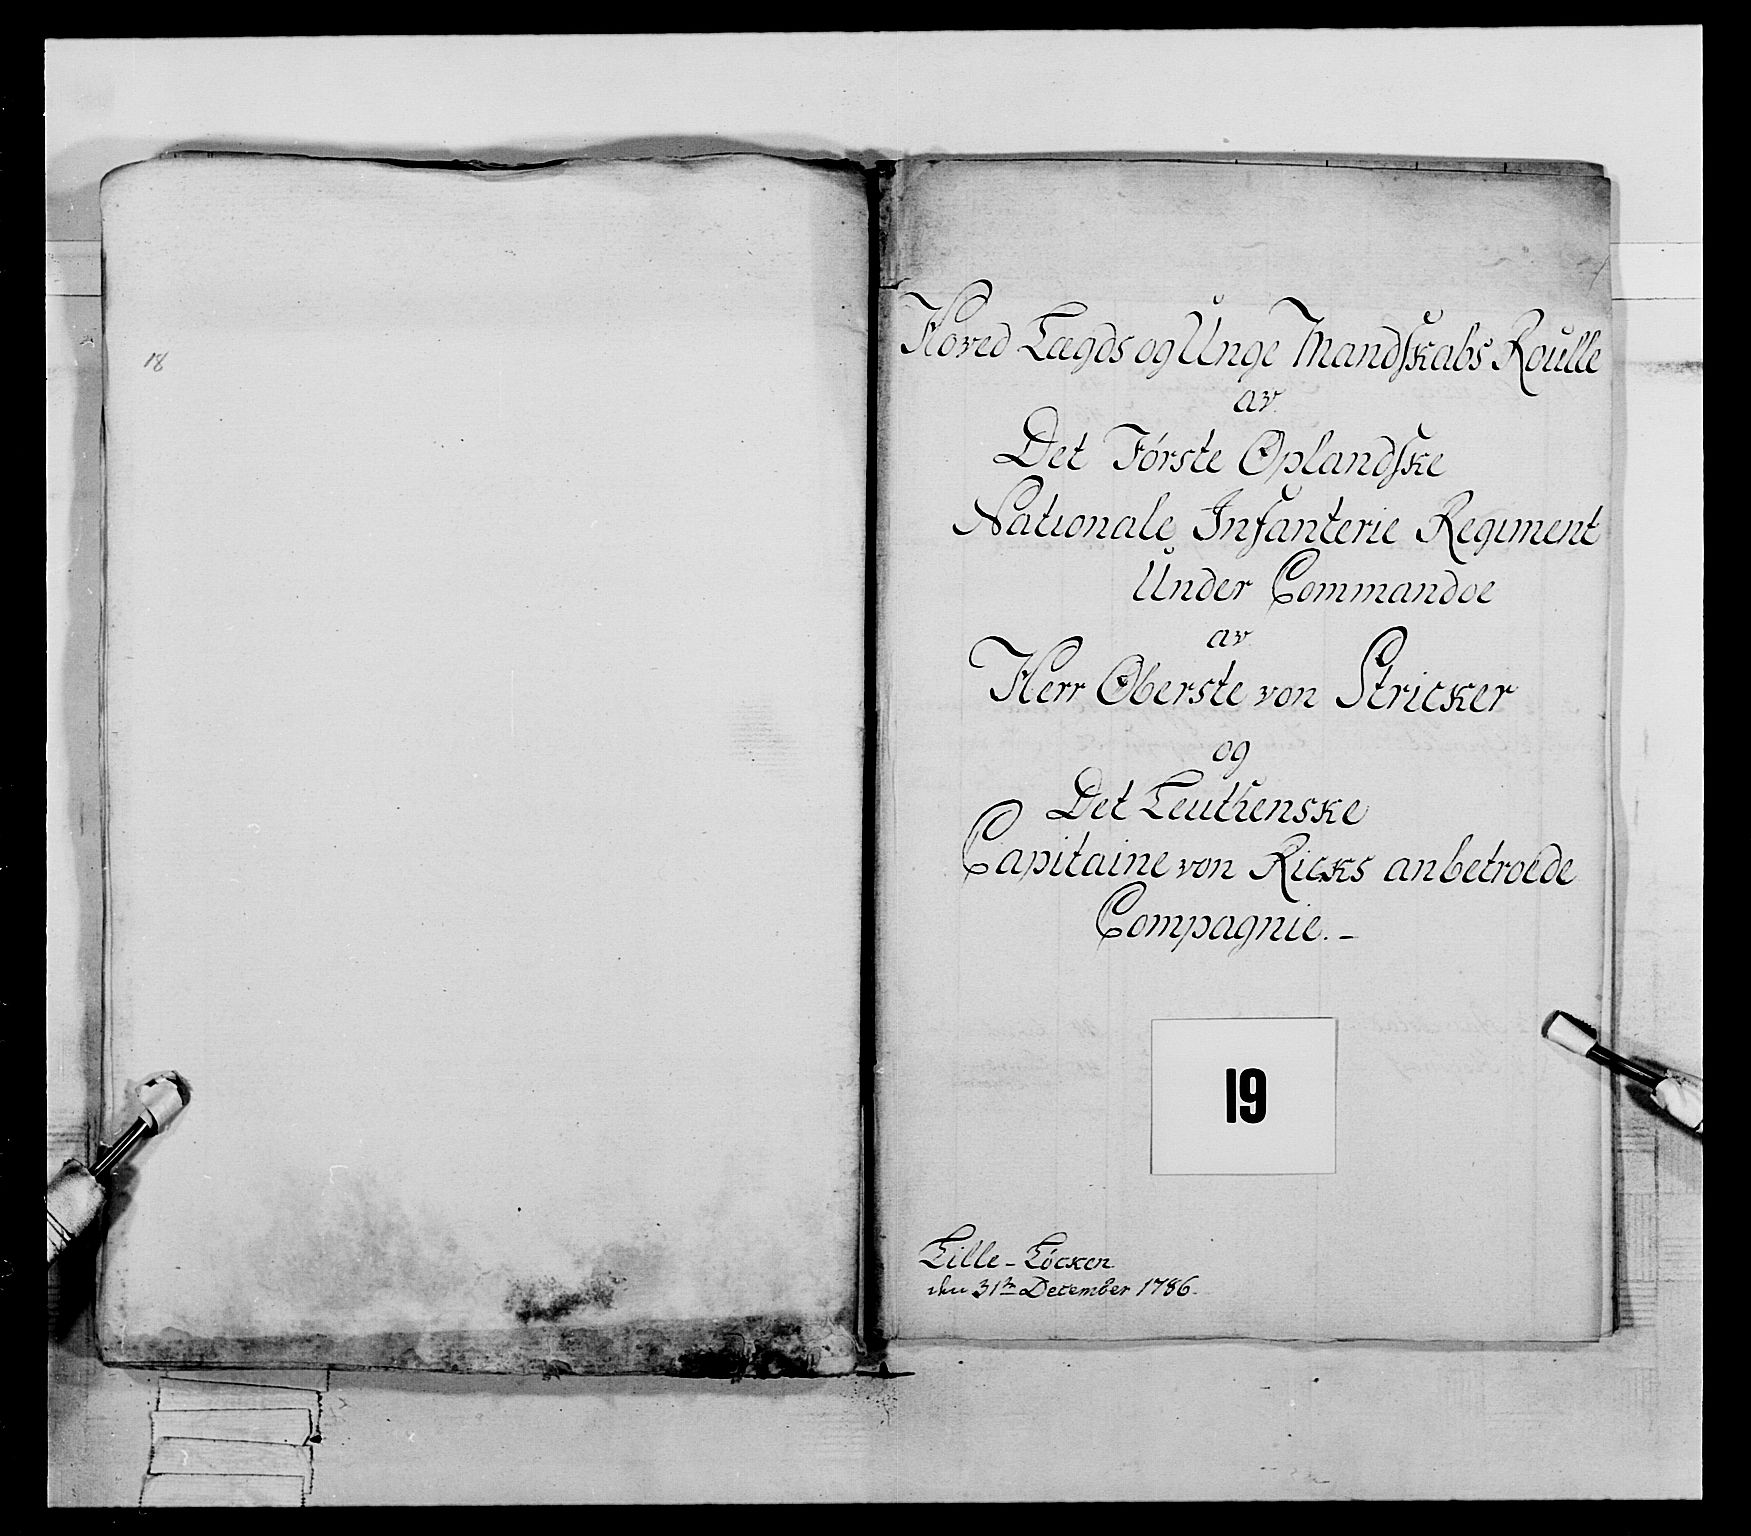 18
Hoved Lægds og Unge Mandskabs Roulle
av
Det Første Oplandske
Nationale Infanterie Regiment
Under Commandoe
av
Herr Oberste von Stricker
og
Det Leuthenske
Capitaine von Ricks anbetroede
Compagnie. -
19
Lille - Løcken
den 31te December 1786.